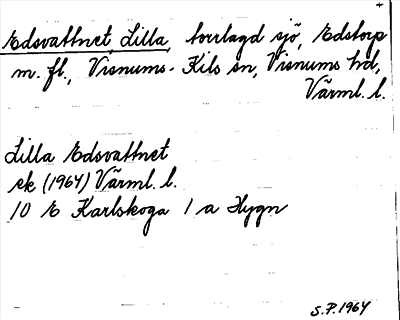 Edsvattnet, Lilla, torrlagd sjö, Edstorp
m. fl., Visnums-Kils sn, Visnums hd,
Värml. l.
Lilla Edsvattnet
ek (1964) Värml. l.
10 E Karlskoga 1 a Hygn
S.P. 1964